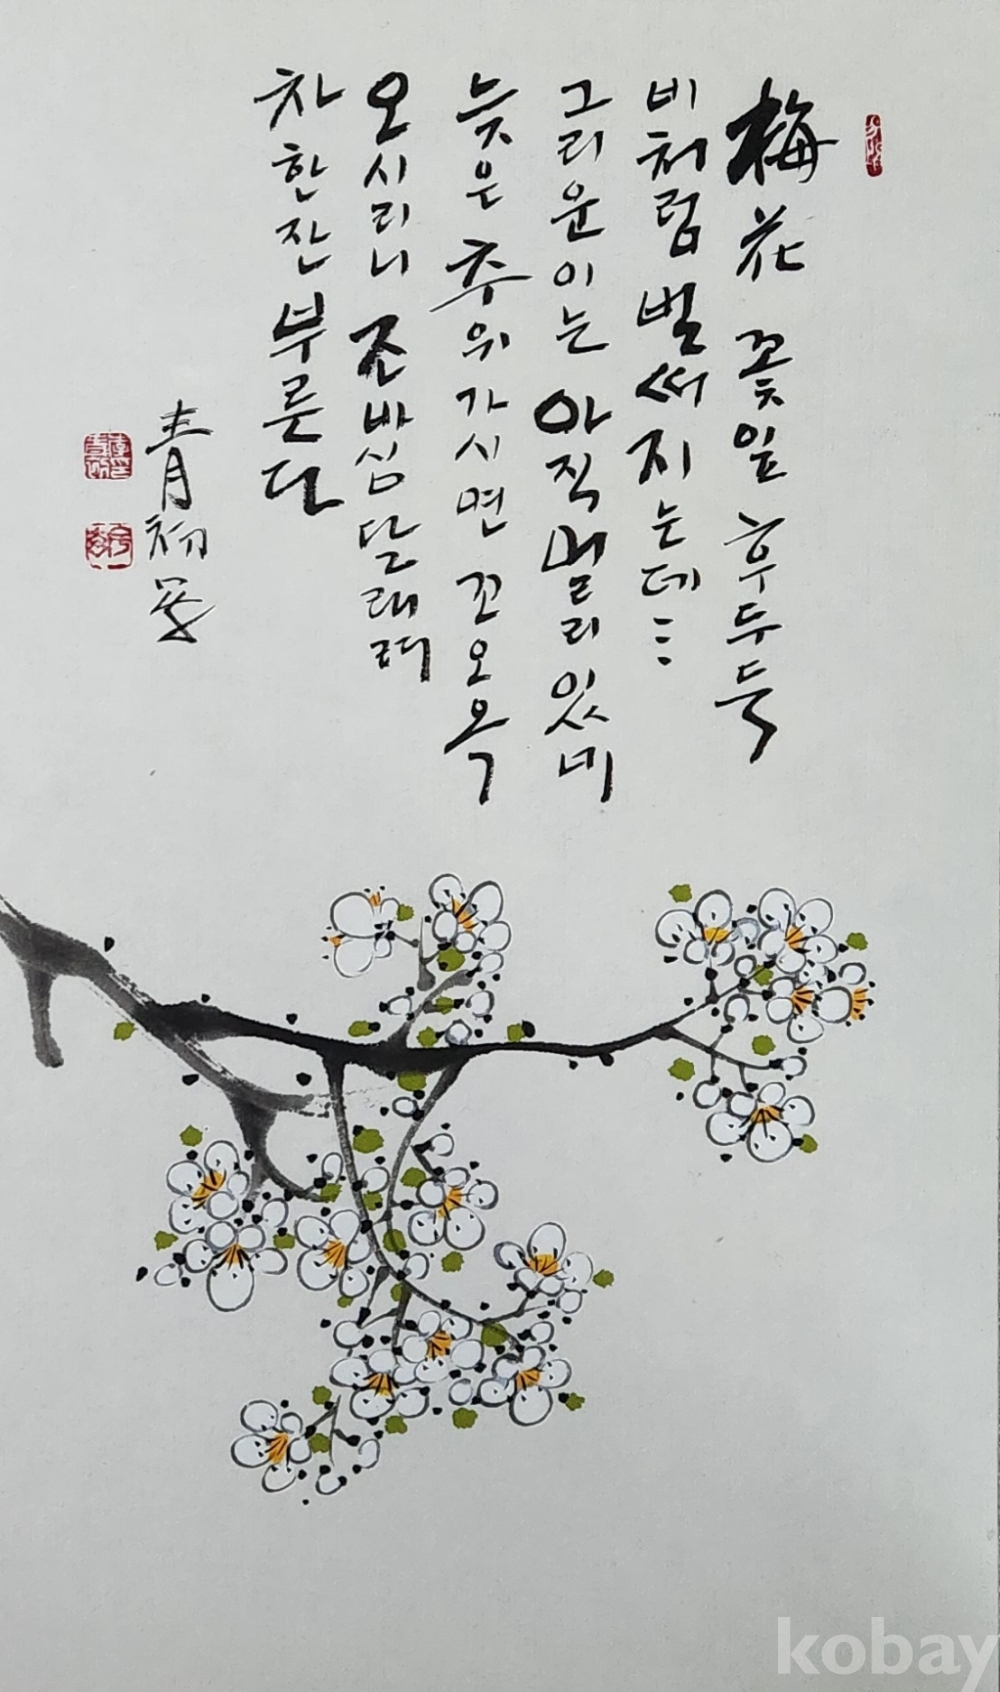 梅花 꽃잎 후두둑
비처럼 벌써 지는데…
그리운 이는 아직 멀리 있네
늦은 추위 가시면 꼬오옥
오시리니 조바심 달래려
차 한잔 부른다
青初
kobay